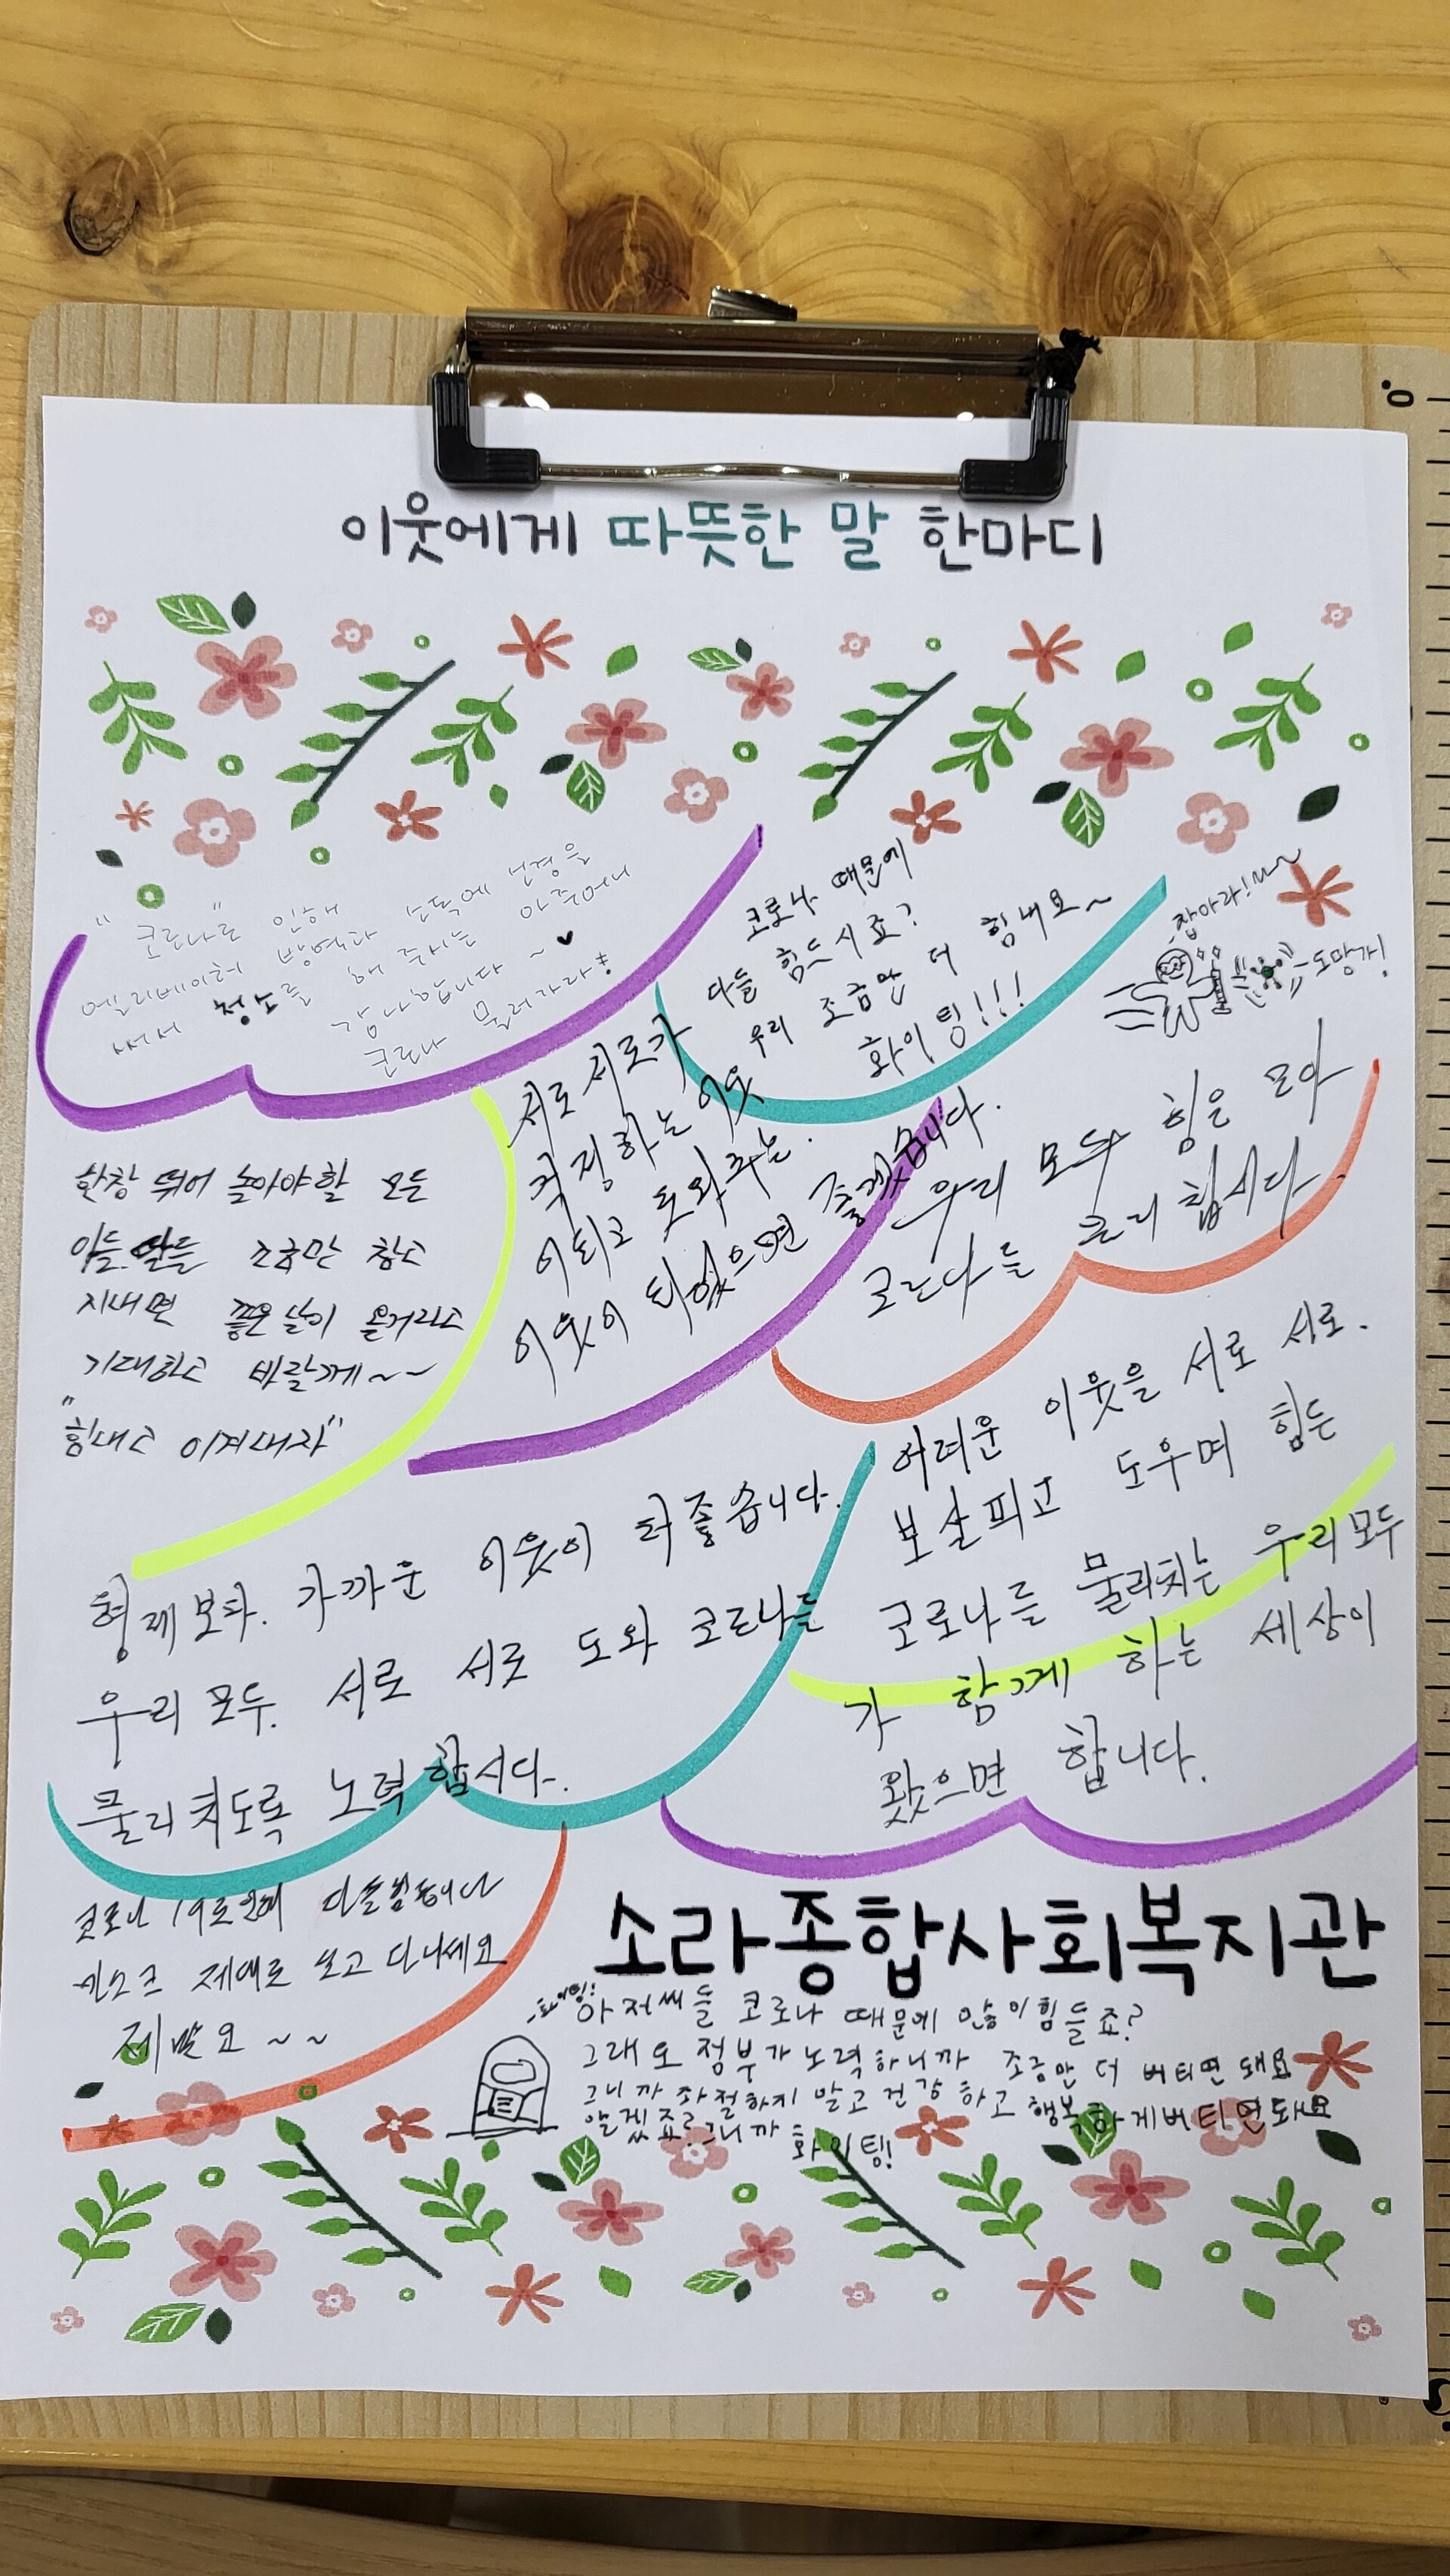 이웃에게 따뜻한 말 한마디
"코로나"로 인해 손독에 신경을
엘리베이터 방역과 아주머니
써서 청소를 해 주시는
감사합니다 ~ ♥
코로나 물러가라!
코로나 때문에
다들 힘드시죠?
우리 조금만 더 힘내요~
화이팅!!!
잡아라!
도망가!
서로서로가
걱정하는 이웃
이되고 도와주는.
이웃이 되었으면 좋겠습니다.
우리 모두 힘을 모아
코로나를 물리칩시다
한창 뛰어 놀아야할 모든
아들.딸들 조금만 참고
지내면 좋은 날이 올거라고
기대하고 바랄께~~
"힘내고 이겨내자"
형제보다. 가까운 이웃이 더좋습니다.
우리 모두. 서로 서로 도와 코로나를
물리치도록 노력 합시다.
어려운 이웃을 서로 서로.
보살피고 도우며 힘든
코로나를 물리치는 우리모두
가 함께 하는 세상이
왔으면 합니다.
코로나 19로인해 다들힘듭니다
마스크 제대로 쓰고 다니세요
제발요 ~ ~
소라종합사회복지관
화이팅!
아저씨들 코로나 때문에 많이힘들죠?
그래도 정부가 노력하니까 조금만 더 버티면 돼요
그니까 좌절하지 말고 건강하고 행복하게버티면돼요
알겠죠? 그니까 화이팅!